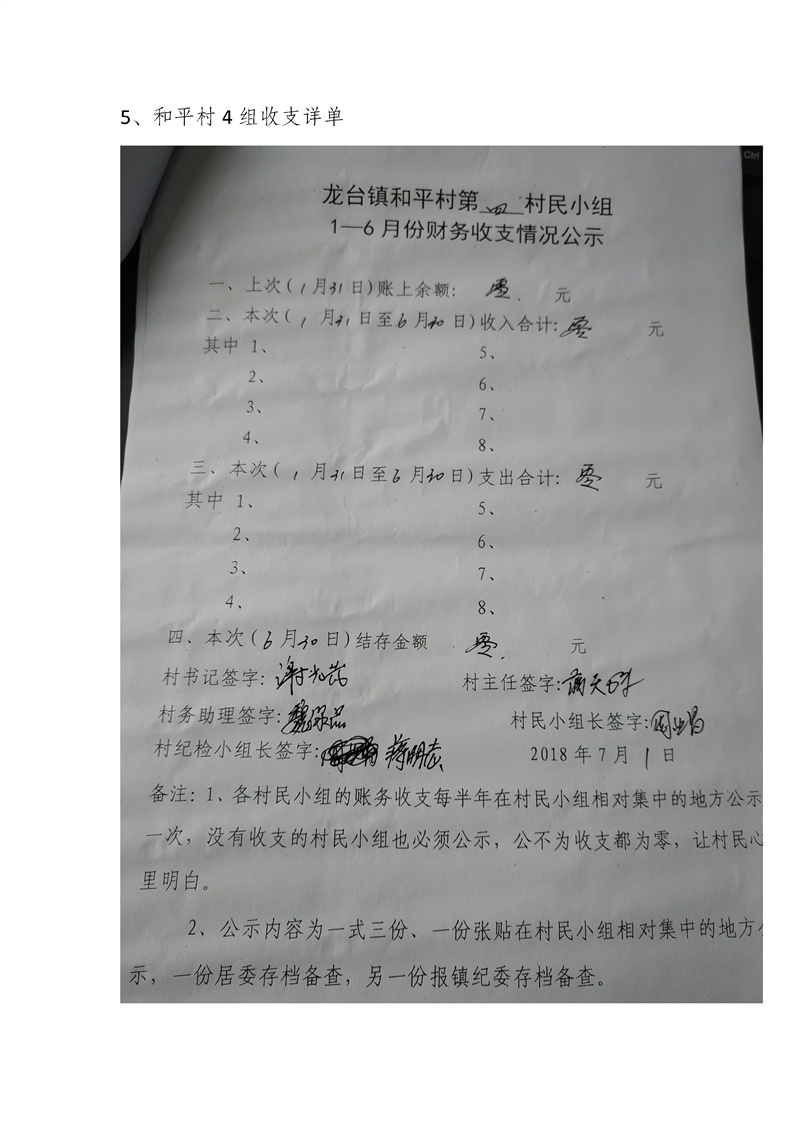 5、和平村 4 组收支详单
Ctrl
龙台镇和平村第四村民小组
1—6 月份财务收支情况公示
一、上次(1月31日)账上余额: 零. 元
二、本次(1月31日至6月30日)收入合计: 零 元
其中 1、 5、
2、 6、
3、 7、
4、 8、
三、本次(1月31日至6月30日)支出合计: 零 元
其中 1、 5、
2、 6、
3、 7、
4、 8、
四、本次(6月30日)结存金额 零. 元
村书记签字: 村主任签字:
村务助理签字: 村民小组长签字:
村纪检小组长签字: 蒋明志 2018 年 7 月 1 日
备注:1、各村民小组的账务收支每半年在村民小组相对集中的地方公示
一次，没有收支的村民小组也必须公示，公不为收支都为零，让村民心
里明白。
2、公示内容为一式三份、一份张贴在村民小组相对集中的地方公
示，一份居委存档备查，另一份报镇纪委存档备查。